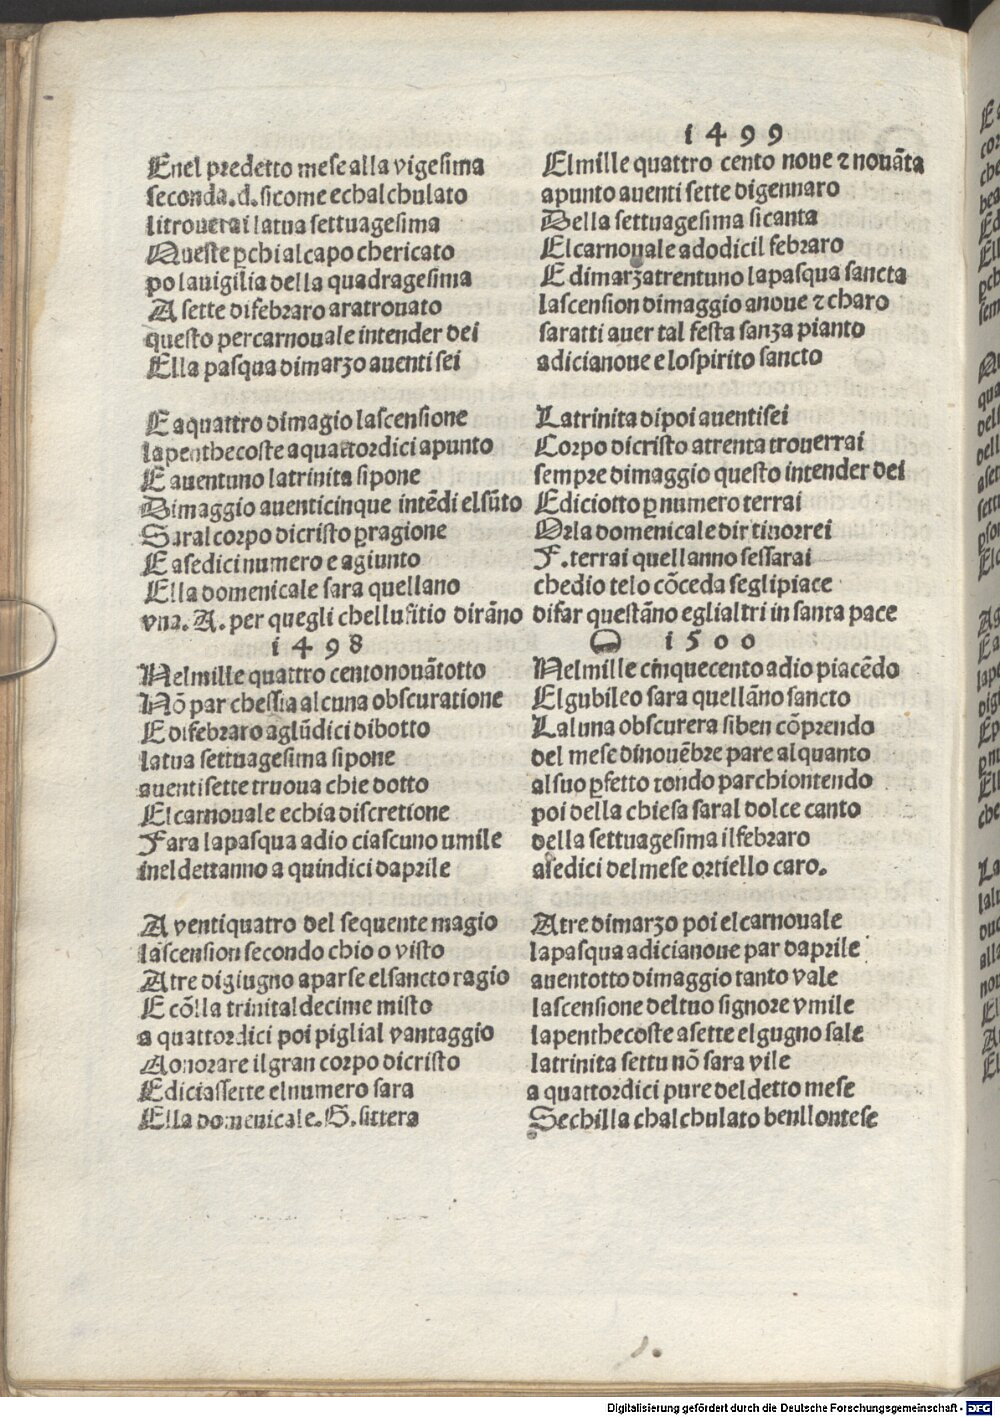 Enel predetto mese alla vigesima
seconda.d.sicome echalchulato
litrouerai latua settuagesima
Queste ꝑchi alcapo chericato
po lauigilia della quadragesima
A sette difebraro aratrouato
questo percarnouale intender dei
Ella pasqua dimarzo auentisei
E aquattro dimagio lascensione
lapenthecoste aquattordici apunto
E auentuno latrinita sipone
Dimaggio auenticinque intēdi elsūto
Saral corpo dicristo ꝑragione
E asedici numero e agiunto
Ella domenicale sara quellano
vna. A. per quegli chellufitio dirāno
1498
Nelmille quattro centonouātotto
Nō par chessia alcuna obscuratione
E difebraro aglūdici dibotto
latua settuagesima sipone
auentisette truoua chie dotto
El carnouale echia discretione
Fara lapasqua adio ciascuno umile
inel dettanno a quindici daprile
A ventiquatro del sequente magio
lascension secondo chio o visto
A tre digiugno aparse elsancto ragio
E cōlla trinital decime misto
a quattordici poi piglial vantaggio
Aonorare ilgran corpo dicristo
Ediciassette elnumero sara
Ella domenicale. G. sittera
1499
Elmille quattro cento noue ⁊ nouāta
apunto auenti sette digennaro
Della settuagesima sicanta
El carnouale adodicil febraro
E dimarzatrentuno lapasqua sancta
lascension dimaggio anoue ⁊ charo
saratti auer tal festa sanza pianto
adicianoue e lospirito sancto
Latrinita dipoi auentisei
Corpo dicristo atrenta trouerrai
sempre dimaggio questo intender dei
Ediciotto ꝑ numero terrai
Orla domenicale dir tinorrei
F. terrai quellanno sessarai
chedio telo cōceda seglipiace
difar questāno eglialtri in santa pace
1500
Nelmille cinquecento adio piacēdo
El gubileo sara quellāno sancto
Laluna obscurera siben cōprendo
del mese dinouēbre pare alquanto
alsuo ꝑfetto tondo parchiontendo
poi della chiesa saral dolce canto
della settuagesima ilfebraro
asedici delmese ortiello caro.
Atre dimarzo poi elcarnouale
lapasqua adicianoue par daprile
auentotto dimaggio tanto vale
lascensione deltuo signore vmile
lapenthecoste asette elgugno sale
latrinita settu nō sara vile
a quattordici pure deldetto mese
Sechilla chalchulato benllontese
Digitalisierung gefördert durch die Deutsche Forschungsgemeinschaft - DFG